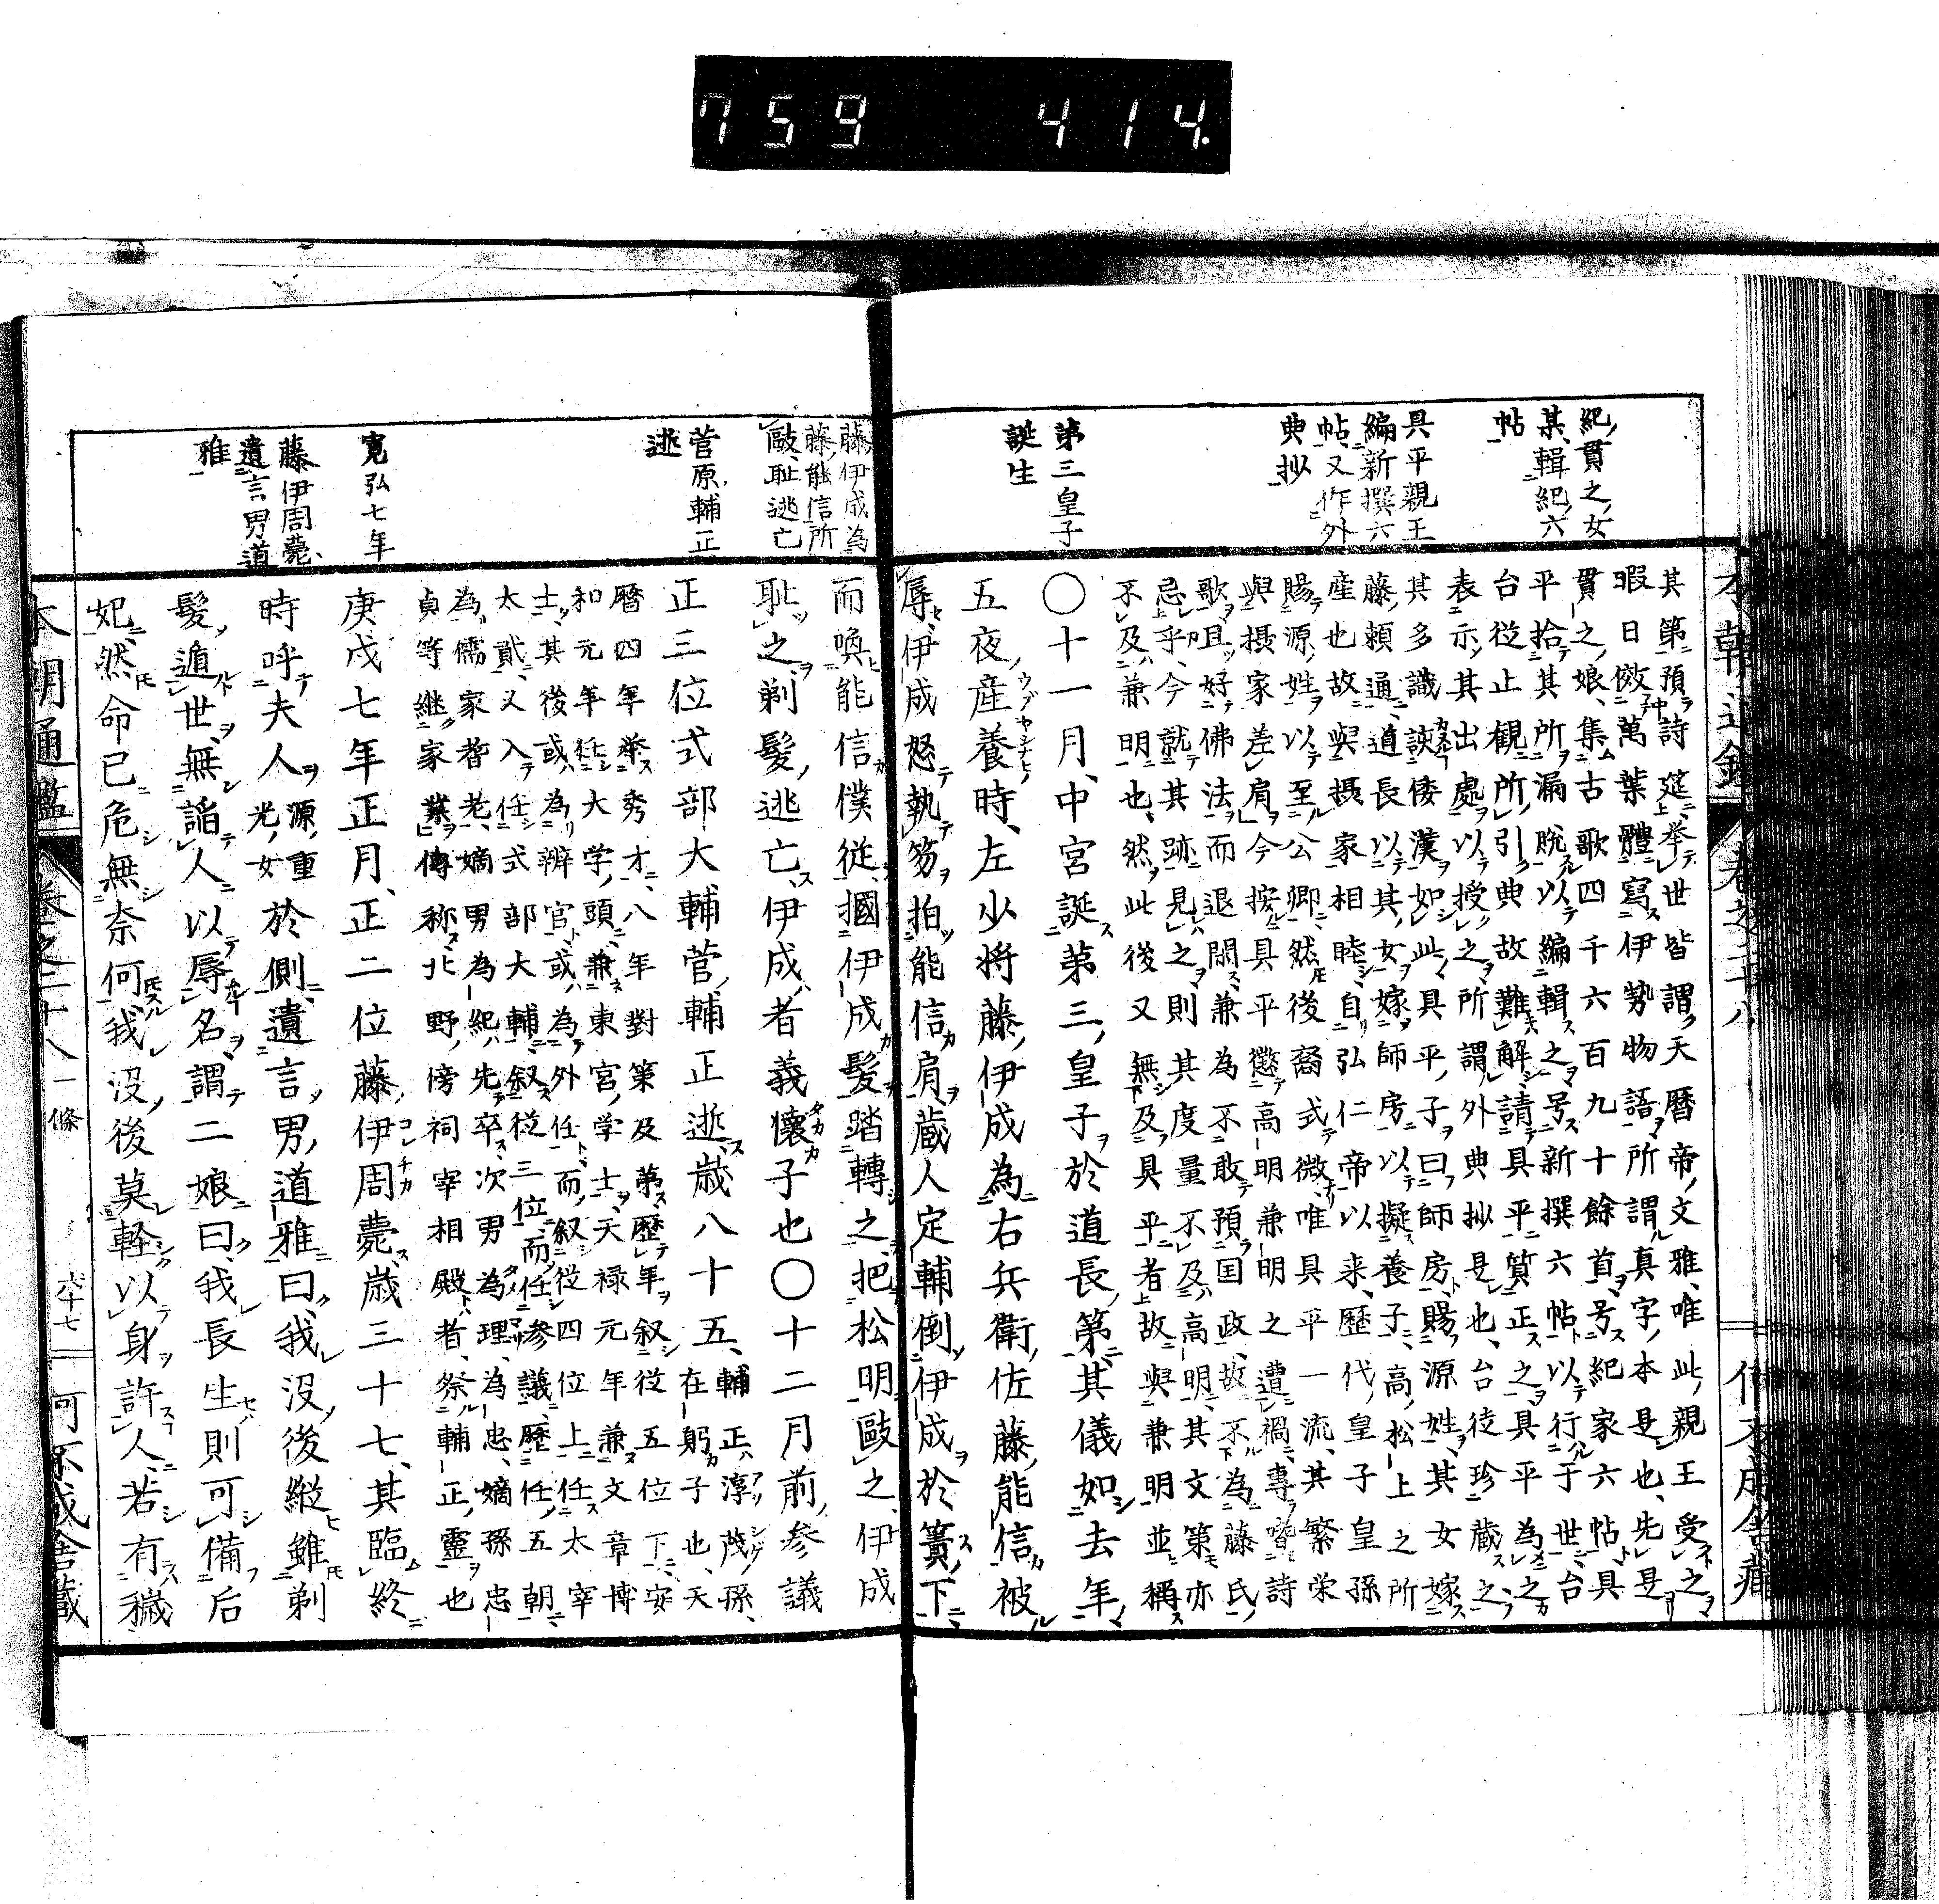 759 414.
紀貫之女
某輯紀六
帖
具平親王
編新撰六
帖又作外
典抄
第三皇子
誕生
其第預詩筵舉世皆謂天暦帝文雅唯此親王受之
暇日倣萬葉體寫伊勢物語所謂真字本是也先是
貫之娘集古歌四千六百九十餘首号紀家六帖具
平拾其所漏脱以編輯之号新撰六帖以行于世台
台従止觀所引典故難解請具平質正之具平為之
表示其出處以授之所謂外典抄是也台徒珍藏之
其多識該倭漢如此具平子曰師房賜源姓其女嫁
藤頼通道長以其女嫁師房以擬養子高松上之所
産也故與摂家相睦自弘仁帝以来歴代皇子皇孫
賜源姓以至公卿然後裔式微唯具平一流其繁栄
與摂家差肩今按具平懲高明兼明之遭禍專嗜詩
歌且好佛法而退閑兼為不敢預国政故不為藤氏
忌乎今就其跡見之則其度量不及高明其文第亦
不及兼明也然此後又無及具平者故與兼明並稱
〇十一月中宮誕第三皇子於道長第其儀如去年
五夜産養時左少将藤伊成為右兵衛佐藤能信被
辱伊成怒執笏拍能信肩蔵人定輔倒伊成於簀下
藤伊成為
藤能信所
毆耻逃亡
菅原輔正
逝
寛弘七年
藤伊周薨
遺言男道
雅
而喚能信僕従摑伊成髪踏轉之把松明毆之伊成
耻之剃髪逃亡伊成者義懷子也〇十二月前参議
正三位式部大輔菅輔正逝歳八十五輔正淳茂孫在躬子也天
暦四年挙秀才八年對策及第歴年叙従五位下安
和元年任大学頭兼東宮学士天禄元年兼文章博
士其後或為辨官或為外任而叙従四位上任太宰
太貳又入任式部大輔叙従三位而任参議歴任五朝
為儒家耆老嫡男為紀先卒次男為理為忠嫡孫忠
貞等継家業傳称北野傍祠宰相殿者祭輔正靈也
庚戌七年正月正二位藤伊周薨歳三十七其臨終
時呼夫人源重光女於側遺言男道雅曰我没後縦雖剃
髪遁世無諂人以辱名謂二娘曰我長生則可備后
妃然命已危無奈何我没後莫軽以身許人若有穢
本朝通鑑 卷之二十八 一條 六十七 何不成舎藏